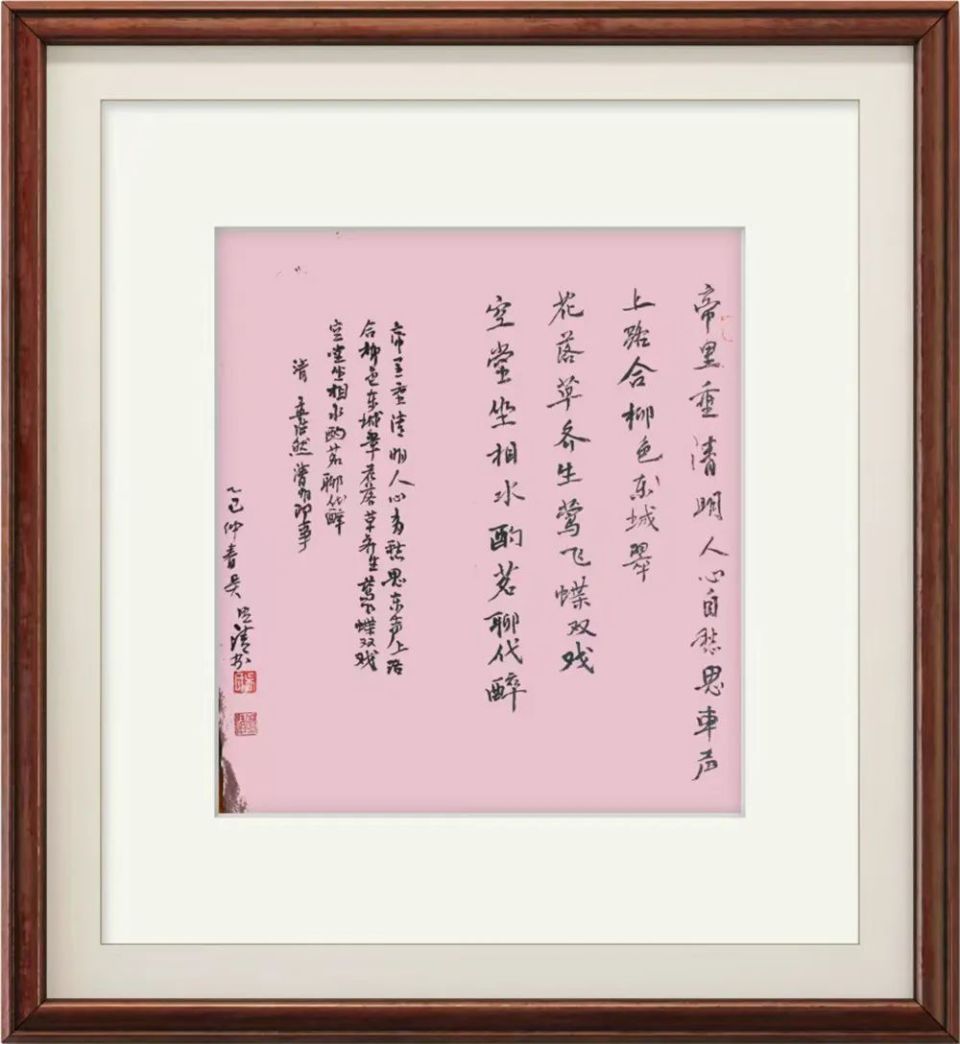 帝里重清明人心自愁思車声
上路合柳色东城翠
花落草齐生莺飞蝶双戏
空堂坐相水酌茗聊代醉
帝里重清明人心自愁思车声上路
合柳色东城翠花落草齐生莺飞蝶双戏
空堂坐相水酌茗聊代醉
清 孟浩然 清明即事
乙巳仲春吴清书